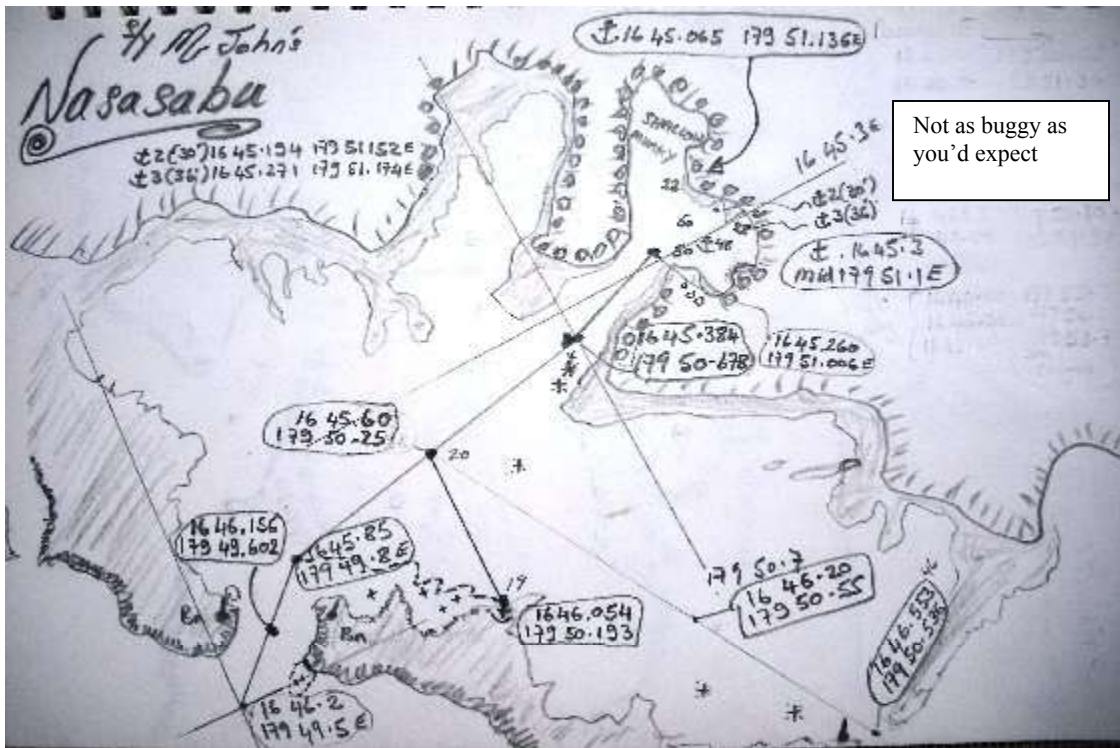 S/Y Mr John's
Nasasabu
⚓2(30')16 45.194 179 51152E
⚓3(36')16 45.271 179 51.174E
⚓.16 45.065 179 51.136E
Not as buggy as
you'd expect
SHALLOW
MURKY
16 45.3E
22
⚓2(30')
⚓3(36')
60
50 ⚓48
⚓.16 45.3
mid 179 51.1E
16 45.384
179 50.678
16 45.260
179 51.006E
16 45.60
179.50.25
20
16 46.156
179 49.602
16 45.85
179 49.8E
19
179 50.7
16 46.20
179 50.55
16 46.054
179 50.193
16 46.553
179 50.535
Bn
Bn
16 46.2
179 49.5E